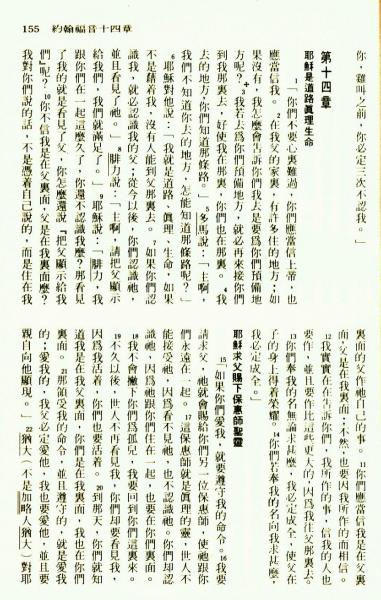 155 約翰福音十四章
你，雞叫之前，你必定三次不認我。」
第十四章
耶穌是道路眞理生命
1「你們不要心裏難過，你們應當信上帝，也
應當信我。2在我父的家裏，有許多住的地方；如
果沒有，我怎麼會告訴你們我去是要爲你們預備地
方呢？3我若去爲你們預備地方，就必再來接你們
到我那裏去，好使我在那裏，你們也在那裏。4我
去的地方，你們知道那條路。」5多馬說：「主啊，
我們不知道你去的地方，怎能知道那條路呢？」
6耶穌對他說：「我就是道路、眞理、生命，如果
不是藉着我，沒有人能到父那裏去。7如果你們認
識我，就必認識我的父；從今以後，你們認識祂，
並且看見了祂。」8腓力說：「主啊，請把父顯示
給我們，我們就滿足了。」9耶穌說：「腓力，我
跟你們在一起這麼久了，你還不認識我麼？那看見
了我的就是看見了父，你怎麼還說『把父顯示給我
們』呢？10你不信我是在父裏面，父是在我裏面麼？
我對你們說的話，不是憑着自己說的，而是住在我
裏面的父作祂自己的事。11你們應當信我是在父裏
面，父是在我裏面；不然，也要因我所作的而相信。
12我實實在在告訴你們，我所作的事，信我的人也
要作，並且要作比這些更大的，因爲我往父那裏去。
13你們奉我的名無論求甚麼，我必定成全，使父在
子的身上得着榮耀。14你們若奉我的名向我求甚麼，
我必定成全。」
耶穌求父賜下保惠師聖靈
15「如果你們愛我，就要遵守我的命令。16我要
請求父，祂就會賜給你們另一位保惠師，使祂跟你
們永遠在一起。17這保惠師就是眞理的靈，世人不
能接受祂，因爲看不見祂，也不認識祂。你們却認
識祂，因爲祂跟你們住在一起，也要在你們裏面。
18我不會撇下你們爲孤兒，我要回到你們這裏來。
19不久以後，世人不再看見我，你們却要看見我，
因爲我活着，你們也要活着。20到那天，你們就知
道我是在我父裏面，你們是在我裏面，我也在你們
裏面。21那領受我的命令，並且遵守的，就是愛我
的；愛我的，我父必定愛他，我也要愛他，並且要
親自向他顯現。」22猶大（不是加略人猶大）對耶